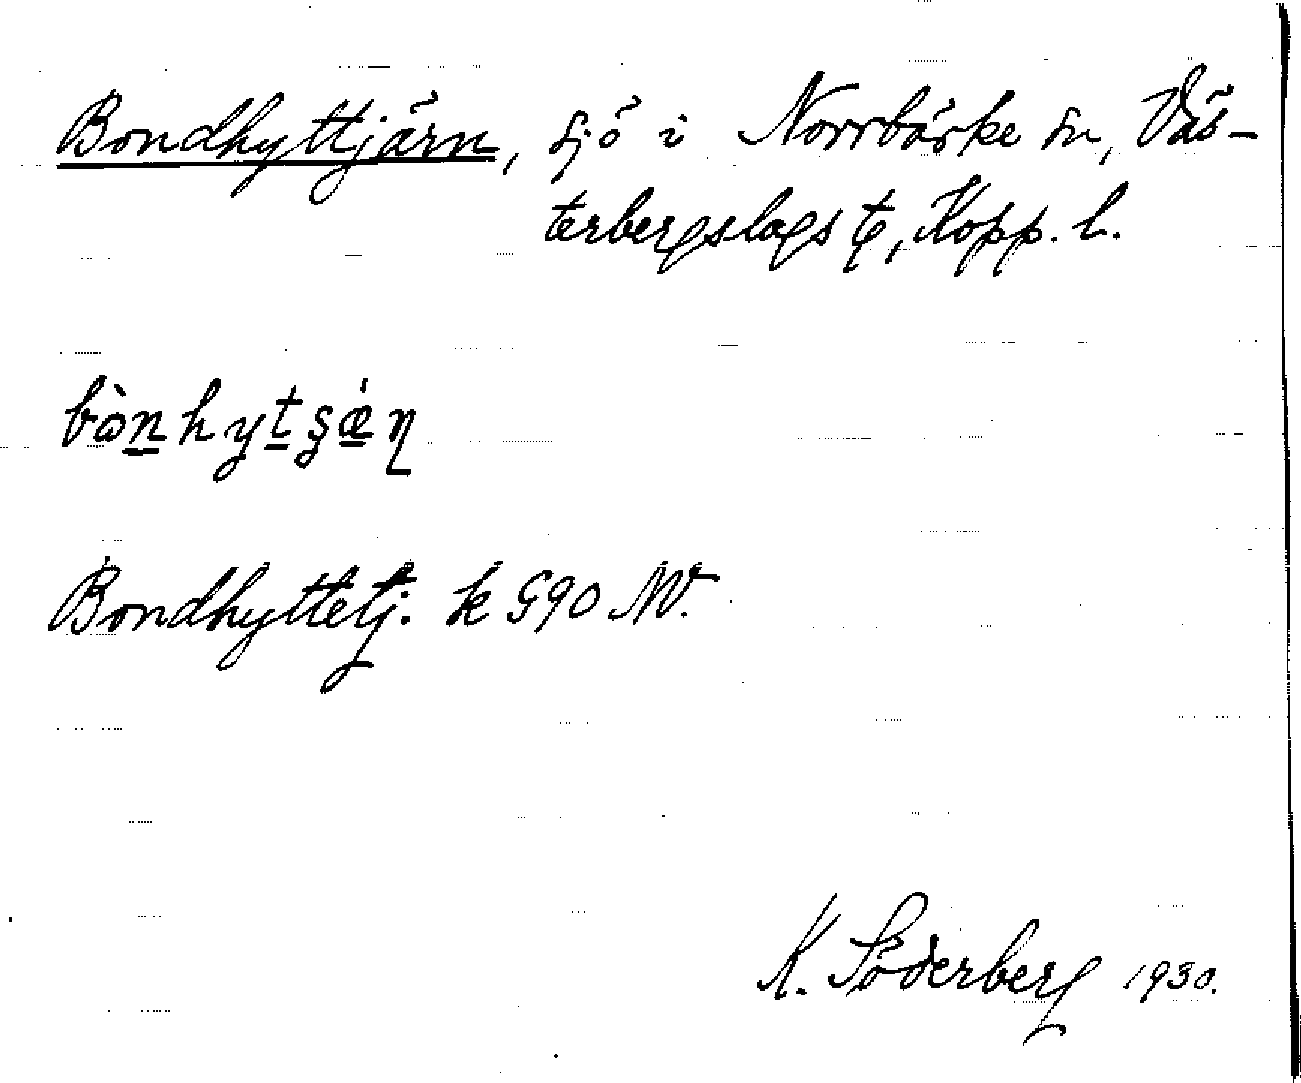 Bondhyttjärn, sjö i Norrbärke sn, Väs-
terbergslags t, Kopp. l.
bònhytʂǽɳ
Bondhyttetj. k G90 NV.
K. Söderberg 1930.